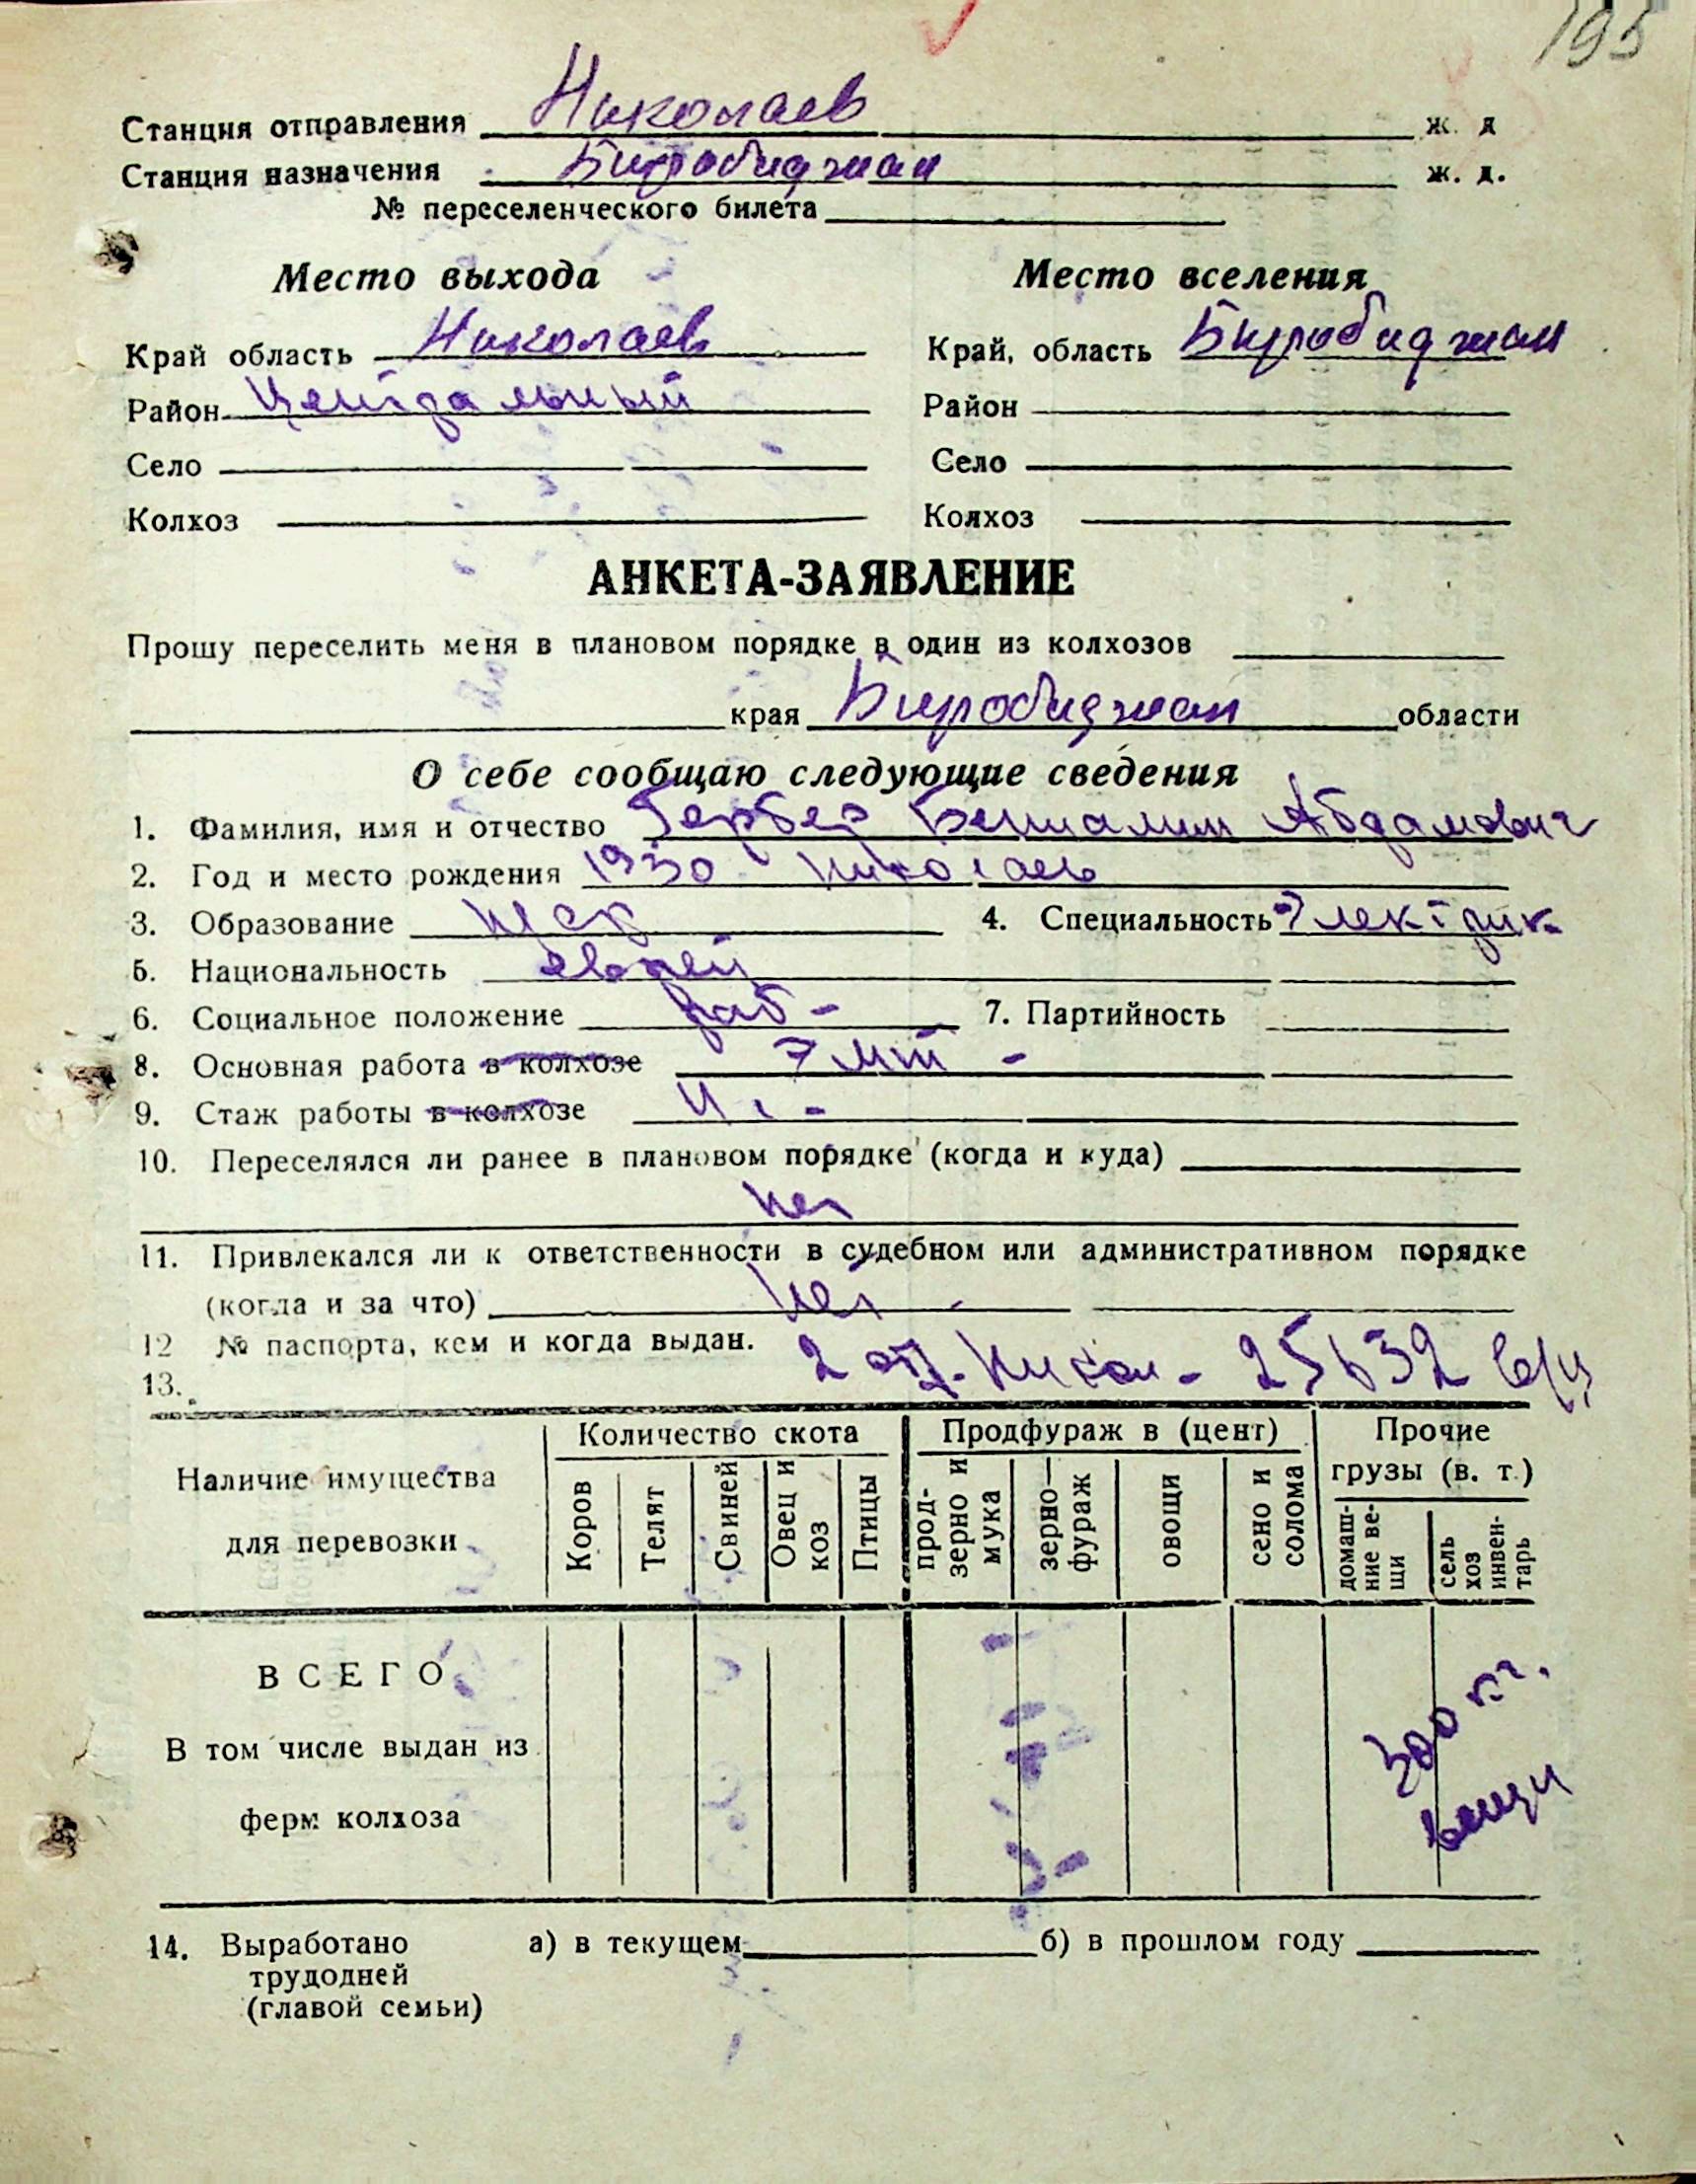 195
Станция отправления Николаев ж. д
Станция назначения Биробиджан ж. д.
№ переселенческого билета
Место выхода Место вселения
Край область Николаев Край, область Биробиджан
Район Центральный Район
Село Село
Колхоз Колхоз
АНКЕТА-ЗАЯВЛЕНИЕ
Прошу переселить меня в плановом порядке в один из колхозов
края Биробиджан области
О себе сообщаю следующие сведения
1. Фамилия, имя и отчество Гербер Бениамин Абрамович
2. Год и место рождения 1930 Николаев
3. Образование 4. Специальность Электрик
5. Национальность еврей
6. Социальное положение раб - 7. Партийность
8. Основная работа в колхозе
9. Стаж работы в колхозе
10. Переселялся ли ранее в плановом порядке (когда и куда)
Нет
11. Привлекался ли к ответственности в судебном или административном порядке
(когда и за что) Нет -
12 № паспорта, кем и когда выдан. 2 отд. Никол -
13.
Наличие имущества для перевозки
Количество скота Продфураж в (цент) Прочие грузы (в. т.)
Коров Телят Свиней Овец и коз Птицы прод-зерно и мука зерно—фураж овощи сено и солома домаш-ние ве-щи сель хоз инвен-тарь
ВСЕГО
300 кг.
В том числе выдан из
вещи
ферм колхоза
14. Выработано а) в текущем б) в прошлом году
трудодней
(главой семьи)